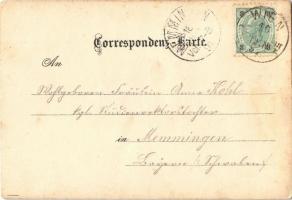 Correspondenz-Karte.
WIEN
An
Wohlgeboren Fräulein Anna Kohl
kgl.
in Memmingen
Bayern (Schwaben)